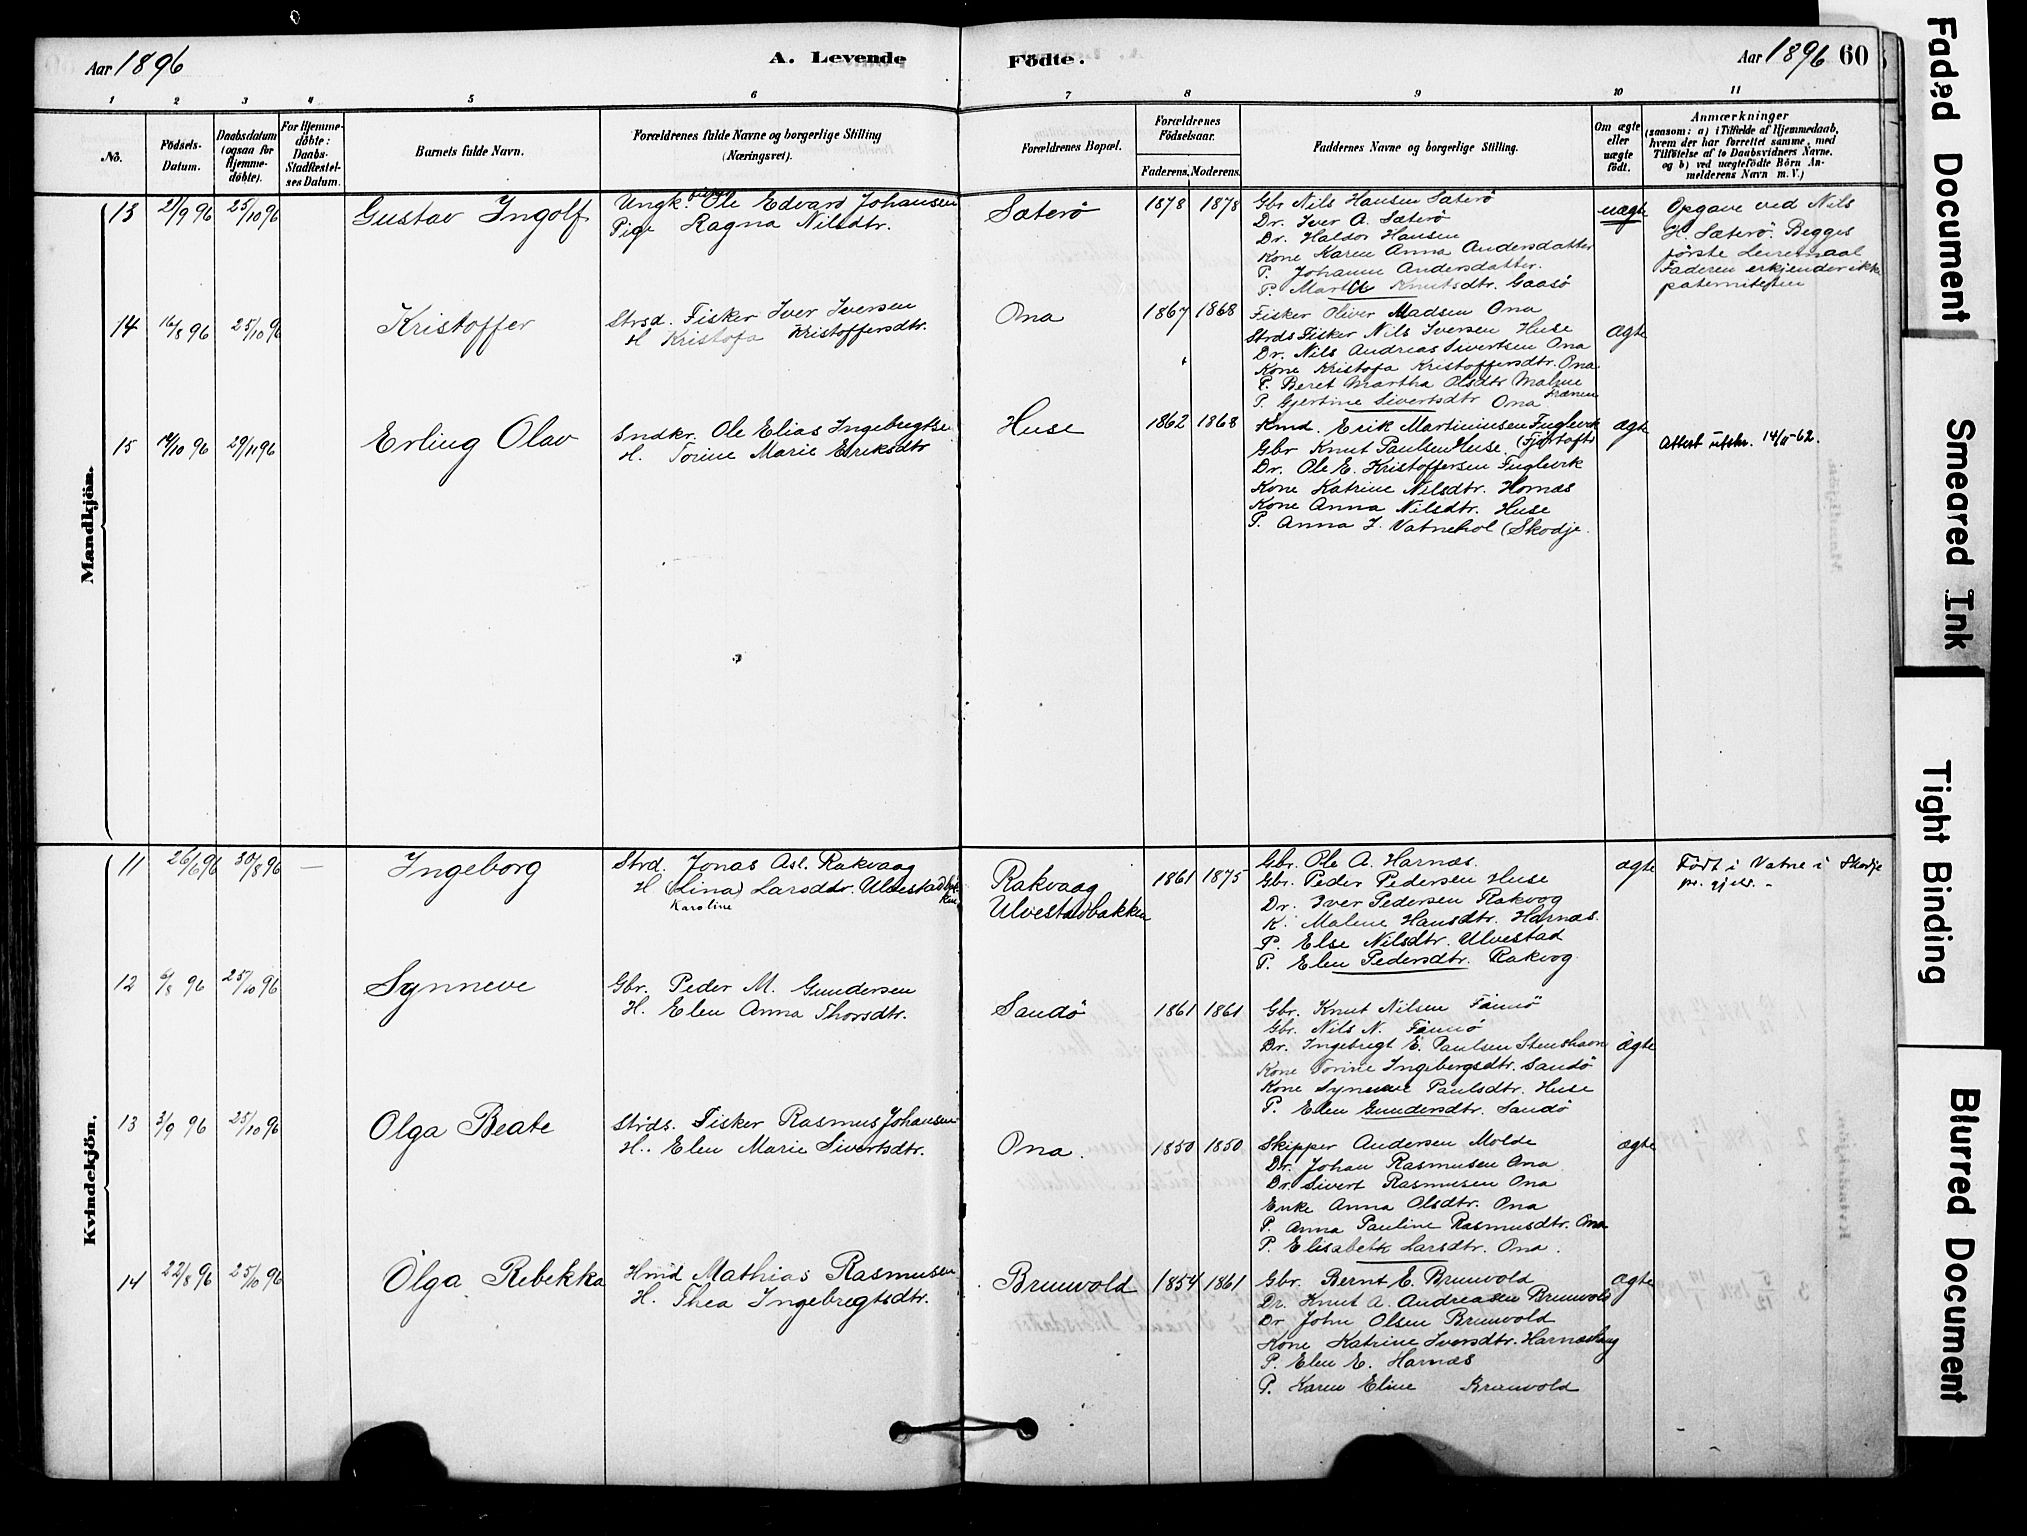 Aar 1896
A. Levende
Födte.
Aar 1896 60
1 2 3 4 5 6 7 8 9 10 11
No.
Födsels-
Datum.
Daabsdatum
(ogsaa for
Hjemme-
döbte).
For Hjemme-
döbte:
Daabs-
Stadfæstel-
ses Datum.
Barnets fulde Navn.
Forældrenes fulde Navne og borgerlige Stilling
(Næringsvei).
Forældrenes Bopæl.
Forældrenes
Födselsaar.
Faderens. Moderens.
Faddernes Navne og borgerlige Stilling.
Om ægte
eller
uægte
født.
Anmærkninger
(saasom: a) i Tilfælde af Hjemmedaab,
hvem der har forrettet samme, med
Tilföielse af to Daabsvidners Navne,
og b) ved uægtefödte Börn An-
melderens Navn m. V.)
Mandkjön.
13 21/9 96 25/10 96 Gustav Ingolf
Ungk. Ole Edvard Johansen
Pige Ragna Nilsdtr.
Sæterö 1878 1878
Gbr Nils Hansen Sæterö
Dr. Iver A. Sæterö
Dr. Haldor Hansen
Kone Karen Anna Andersdatter
P. Johanne Andersdatter.
P. Martha Knutsdtr. Gaasö
uægte
Opgave ved Nils
H. Sæterö. Begges
første Leiermaal
Faderen erkjender ikke
paterniteten
14 16/8 96 25/10 96 Kristoffer
Strsd. Fisker Iver Iversen
H Kristofa Kristoffersdtr.
Ona 1867 1868
Fisker Oliver Madsen Ona
Strds Fisker Nils Iversen Huse
Dr. Nils Andreas Sivertsen Ona
Kone Kristofa Kristoffersdtr. Ona
P. Beret Martha Olsdtr Malme
Frænen
P. Gjertine Sivertsdtr Ona
ægte
15 14/10 96 29/11 96 Erling Olav
Sndkr. Ole Elias Ingebrigtse
H. Torine Marie Eriksdtr
Huse 1862 1868
Kmd. Erik Martinusen Fuglevik
Gbr Knut Paulsen Huse (Fjørtoft)
Dr. Ole E. Kristoffersen Fuglevik
Kone Katrine Nilsdtr. Hornæs
Kone Anna Nilsdtr. Huse
P. Anna J. Vatnehol (Skodje
ægte
Attest utskr. 14/11-62.
Kvindekjön.
11 26/6 96 30/8 96 — Ingeborg
Strd. Jonas Asl. Rakvaag
H (Lina) Larsdtr. Ulvestadbak
ken
Karoline
Rakvaag
Ulvestadbakken
1861 1875
Gbr. Ole A. Harnæs.
Gbr. Peder Pedersen Huse
Dr. Iver Pedersen Rakvog
K. Malene Hansdtr. Harnæs.
P. Else Nilsdtr. Ulvestad
P. Elen Pedersdtr. Rakvog
ægte
Født i Vatne i Skodje
pr. gjeld. -
12 6/8 96 25/10 96 Synneve
Gbr. Peder M. Gundersen
H. Elen Anna Thorsdtr.
Sandö 1861 1861
Gbr. Knut Nilsen Fämö
Gbr. Nils N. Fämö
Dr. Ingebrigt E. Paulsen Stenshavn
Kone Torine Ingebergsdtr. Sandö
Kone Synneve Paulsdtr. Huse
P. Elen Gundersdtr. Sandö
ægte
13 3/9 96 25/10 96 Olga Beate
Strds. Fisker Rasmus Johansen
H.. Elen Marie Sivertsdtr.
Ona. 1850 1850
Skipper Andersen Molde
Dr. Johan Rasmusen Ona
Dr. Sivert Rasmusen Ona
Enke Anna Olsdtr. Ona
P. Anna Pauline Rasmusdtr. Ona
P. Elisabeth Larsdtr. Ona.
ægte
14 22/8 96 25/10 96 Olga Rebekka
Hmd Mathias Rasmusen
H. Thea Ingebregtsdtr.
Brunvold 1854 1861
Gbr. Bernt E. Brunvold
Dr. Knut A. Andreasen Brunvold
Dr John Olsen Brunvold
Kone Katrine Iversdtr. Harnæshaug
P. Elen E. Harnæs
P. Karen Eline Brunvold
ægte
Faded Document
Smeared Ink
Tight Binding
Blurred Document